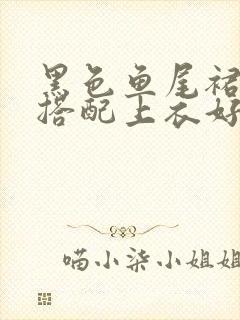 黑色鱼尾裙
搭配上衣好
喵小柒小姐姐